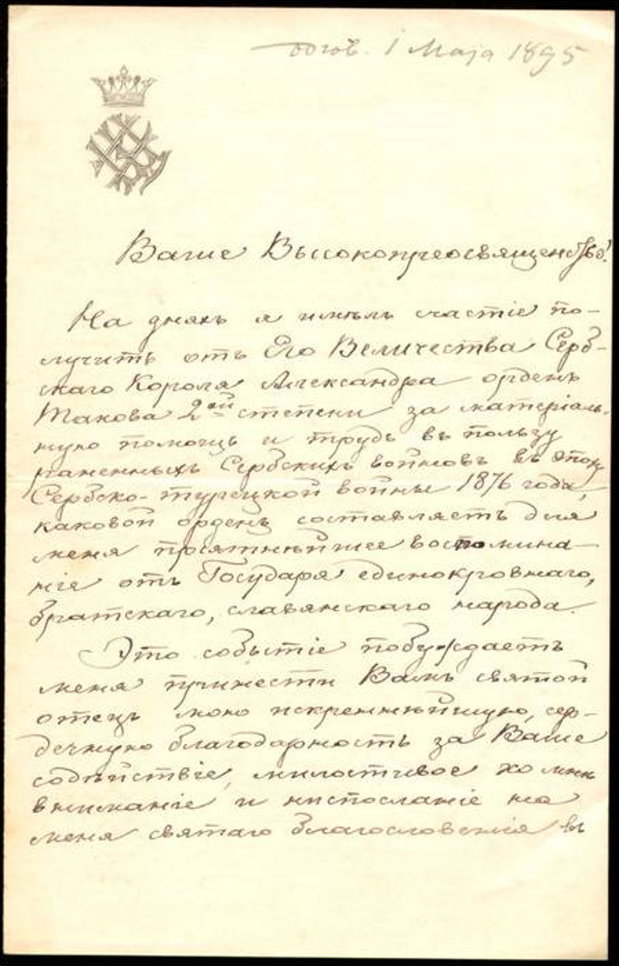 одгов. 1 Маја 1895
Ваше Высокопреосвященство!
На дняхъ я имѣлъ счастіе по-
лучить отъ Его Величества Серб-
скаго Короля Александра орденъ
Такова 2ой степени за матеріаль-
ную помощь и трудъ въ пользу
раненныхъ Сербскихъ войновъ въ эпоху
Сербско-турецкой войны 1876 года,
каковой орденъ составляетъ для
меня пріятнѣйшее воспомина-
ніе отъ Государя единокровнаго,
братскаго, славянскаго народа.
Это событіе побуждаетъ
меня принести Вамъ святой
отецъ мою искреннѣйшую, сер-
дечную благодарность за Ваше
содѣйствіе, милостивое ко мнѣ
вниманіе и ниспосланіе на
меня святаго благословенія въ